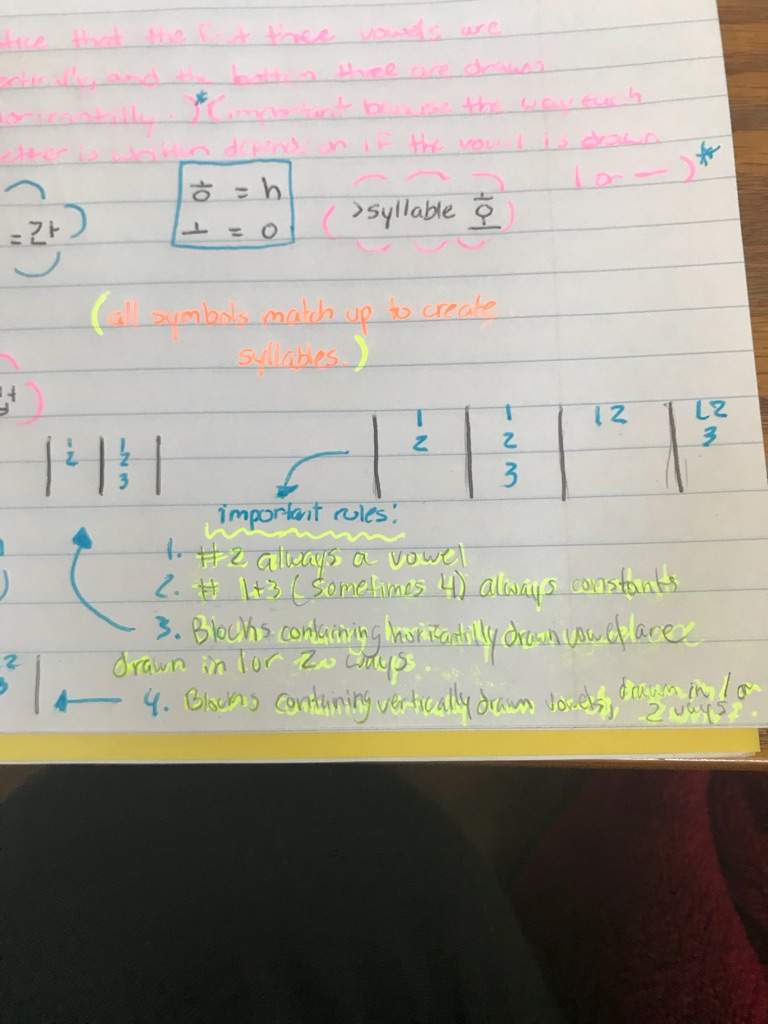 tice that the first three vowels are
ertically, and the bottom three are drawn
horizantilly. )* (important because the way each
etter is written depends on if the vowel is drawn
| or — )*
ㅎ = h
ㅗ = o
(>syllable 호)
= 간)
(all symbols match up to create
syllables.)
)
1 1 12 12
2 2 3
3
1 1
2 2
3
important rules:
1. #2 always a vowel
2. # 1+3 (sometimes 4) always constants
3. Blocks containing horizantilly drawn vowel placed
drawn in 1 or 2 ways.
2
3
4. Blocks containing vertically drawn vowels, drawn in 1 or
2 ways.